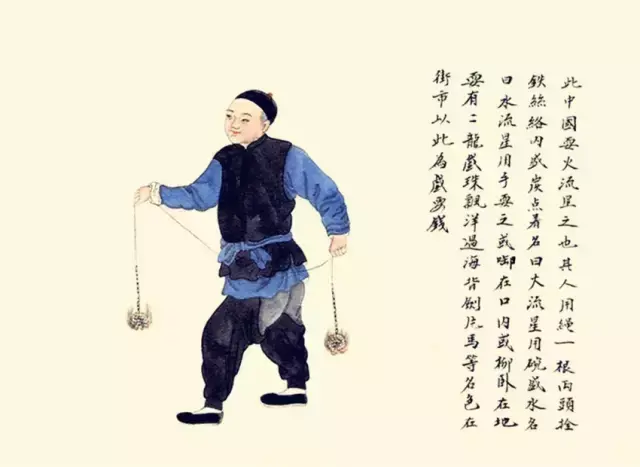 此中國耍火流星之也其人用繩一根兩頭拴
鉄絲絡内盛炭点着名曰火流星用碗盛水名
曰水流星用手耍之或啣在口内或仰卧在地
耍有二龍戲珠觀洋過海背劍馬等名色在
街市以此為戲要錢